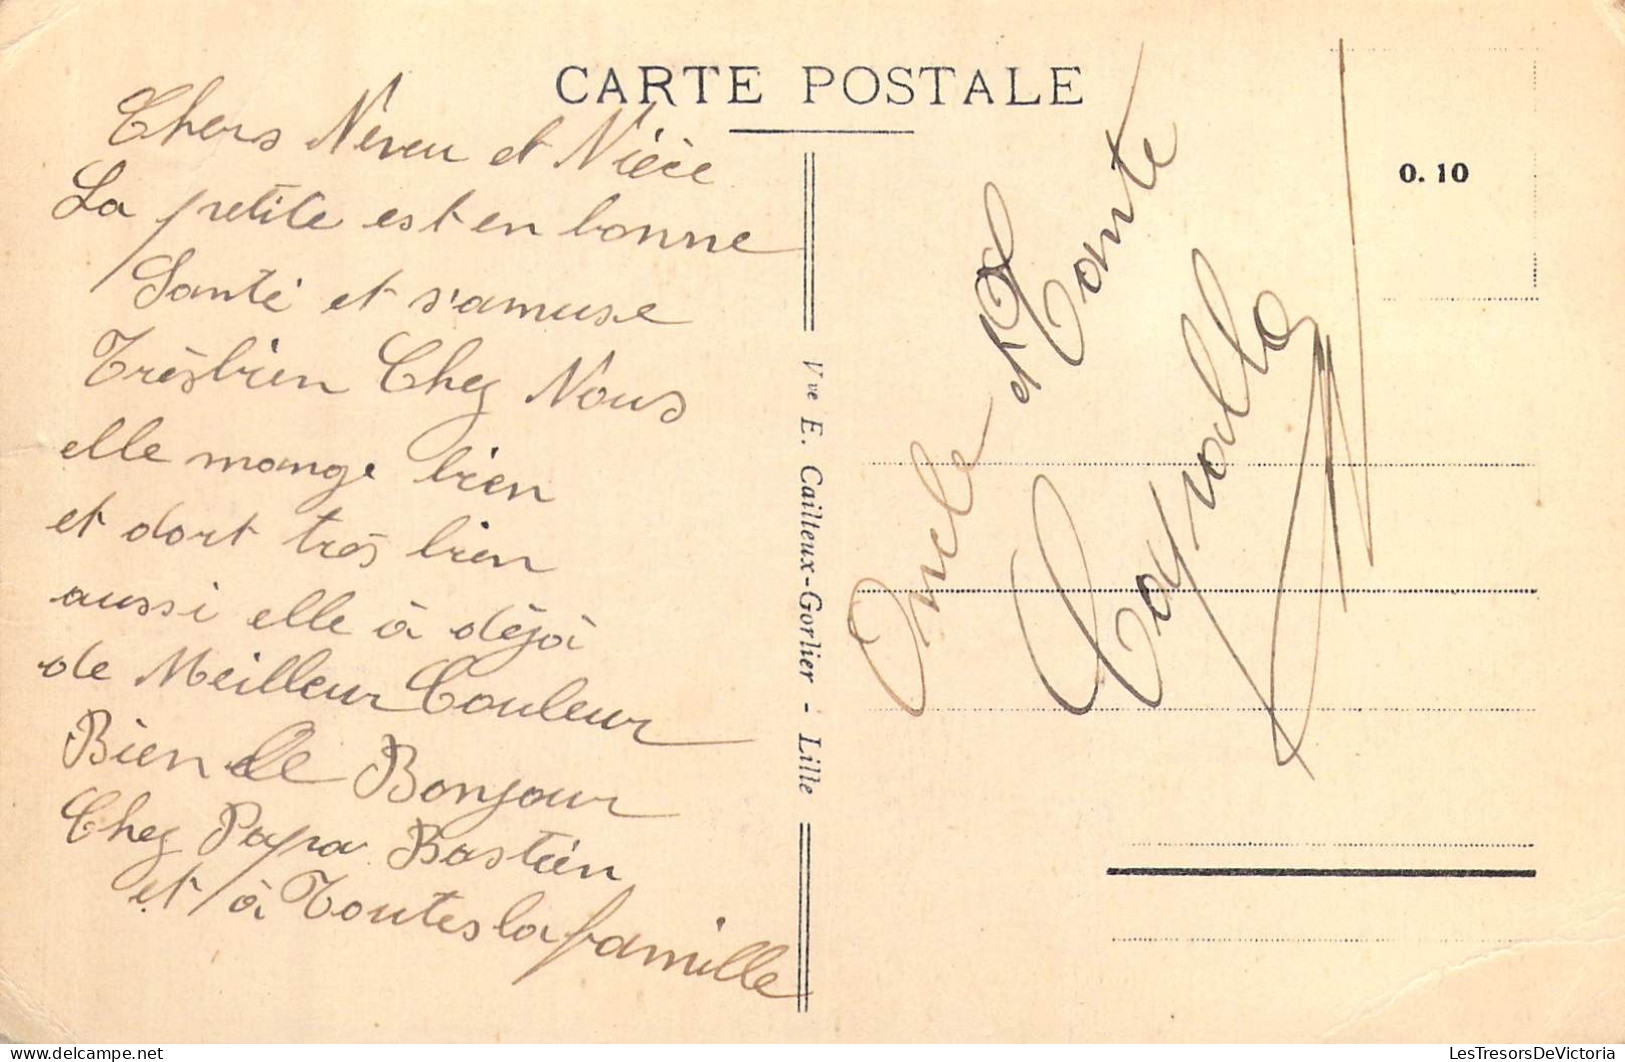 CARTE POSTALE
Chers Neveu et Nièce
La petite est en bonne
Santé et s'amuse
Trèsbien Chez Nous
elle mange bien
et dort très bien
aussi elle à déjà
de Meilleur Couleur
Bien le Bonjour
Chez Papa Bastien
et à Toutes la famille
Vve E. Cailleux-Gorlier - Lille
0. 10
Oncle et Tante
LesTresorsDeVictoria